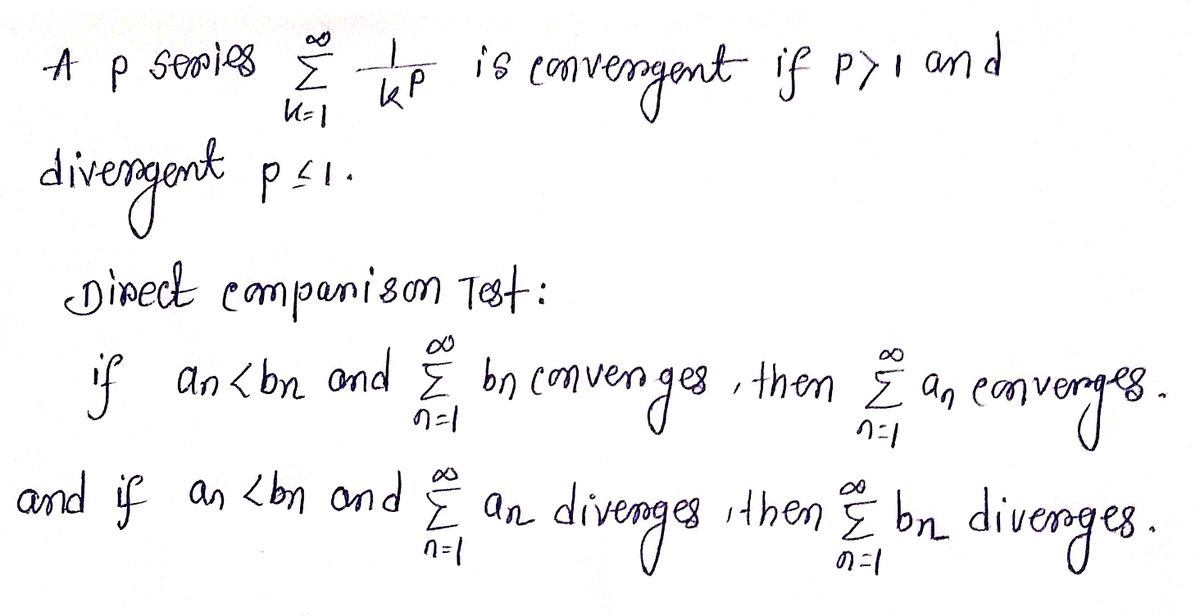 A p series ∞∑k=1 1/k^p is convergent if p>1 and
divergent p≤1.
Direct comparison Test:
if an<bn and ∞∑n=1 bn converges, then ∞∑n=1 an converges.
and if an<bn and ∞∑n=1 an diverges, then ∞∑n=1 bn diverges.